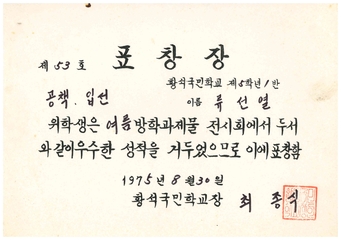 제 53호 표창장
황석국민학교 제5학년1반
공책. 입선 이름 류선열
위학생은 여름방학과제물 전시회에서 두서
와같이우수한 성적을 거두었으므로 이에 표창함
1975년 8월 30일
황석국민학교장 최종식